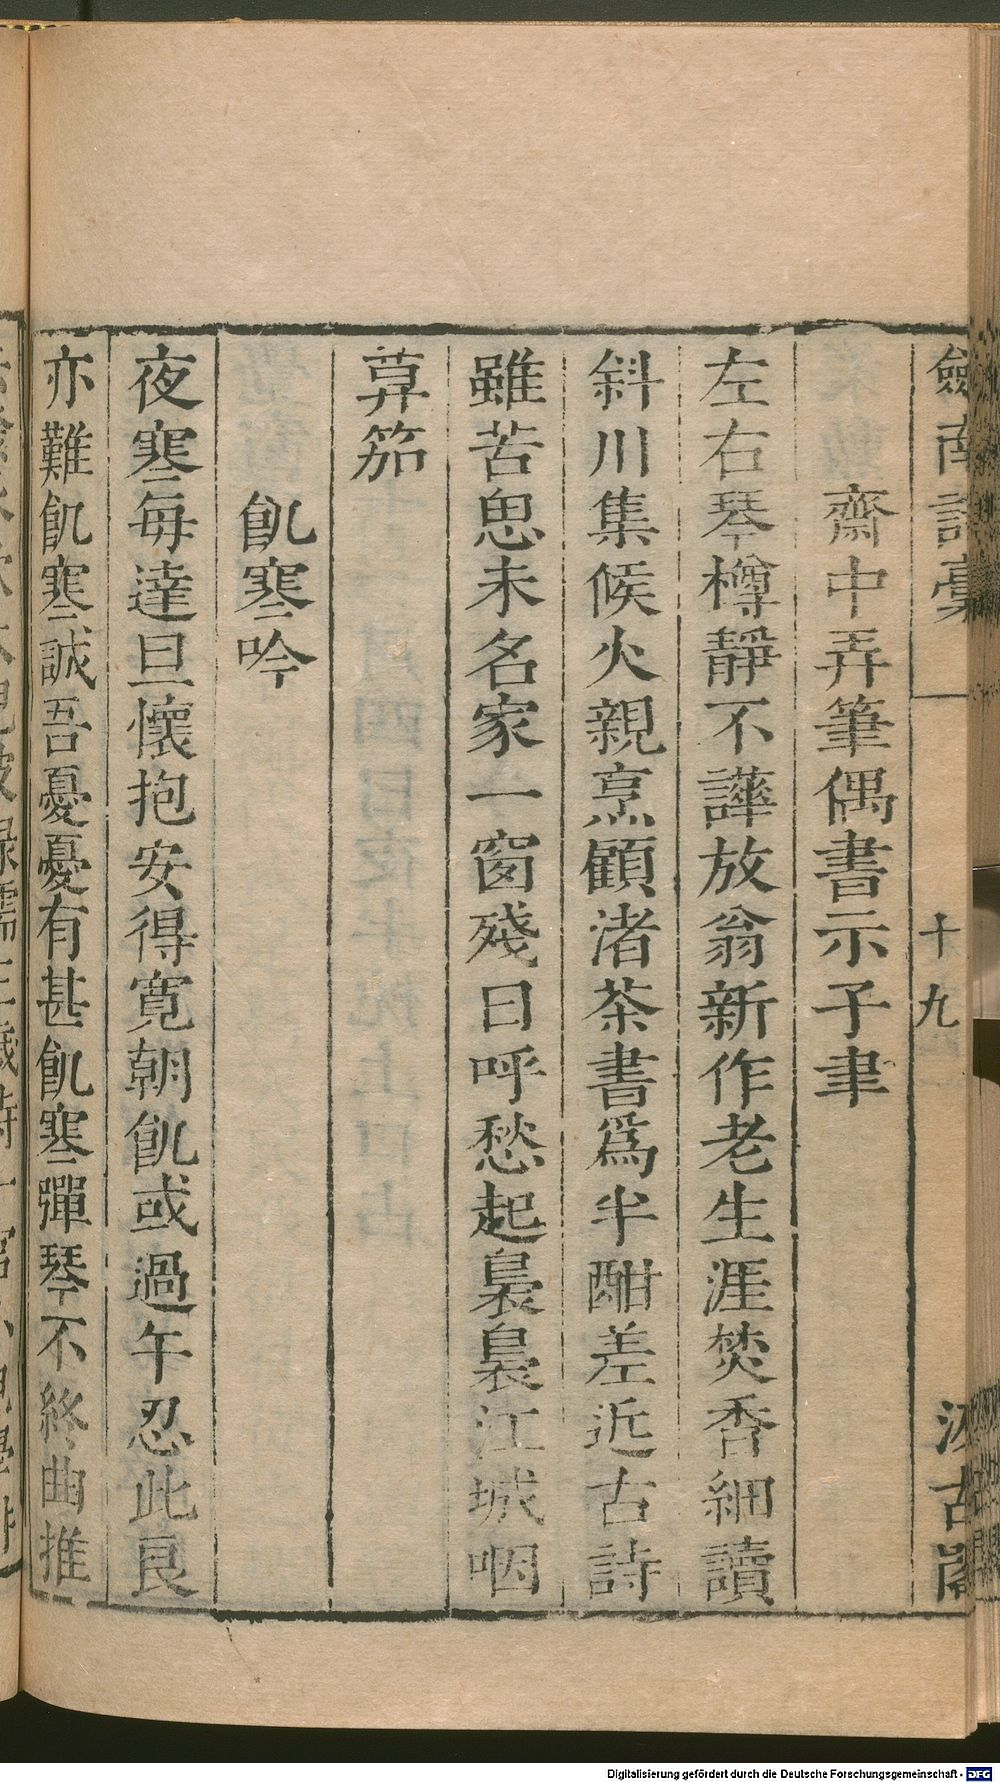 劔南詩藁
十九
汲古閣
齋中弄筆偶書示子聿
左右琴樽靜不譁放翁新作老生涯焚香細讀
斜川集候火親烹顧渚茶書爲半酣差近古詩
雖苦思未名家一窗殘日呼愁起裊裊江城咽
莫笳
飢寒吟
夜寒每達旦懷抱安得寛朝飢或過午忍此良
亦難飢寒誠吾憂憂有甚飢寒彈琴不終曲推
Digitalisierung gefördert durch die Deutsche Forschungsgemeinschaft - DFG